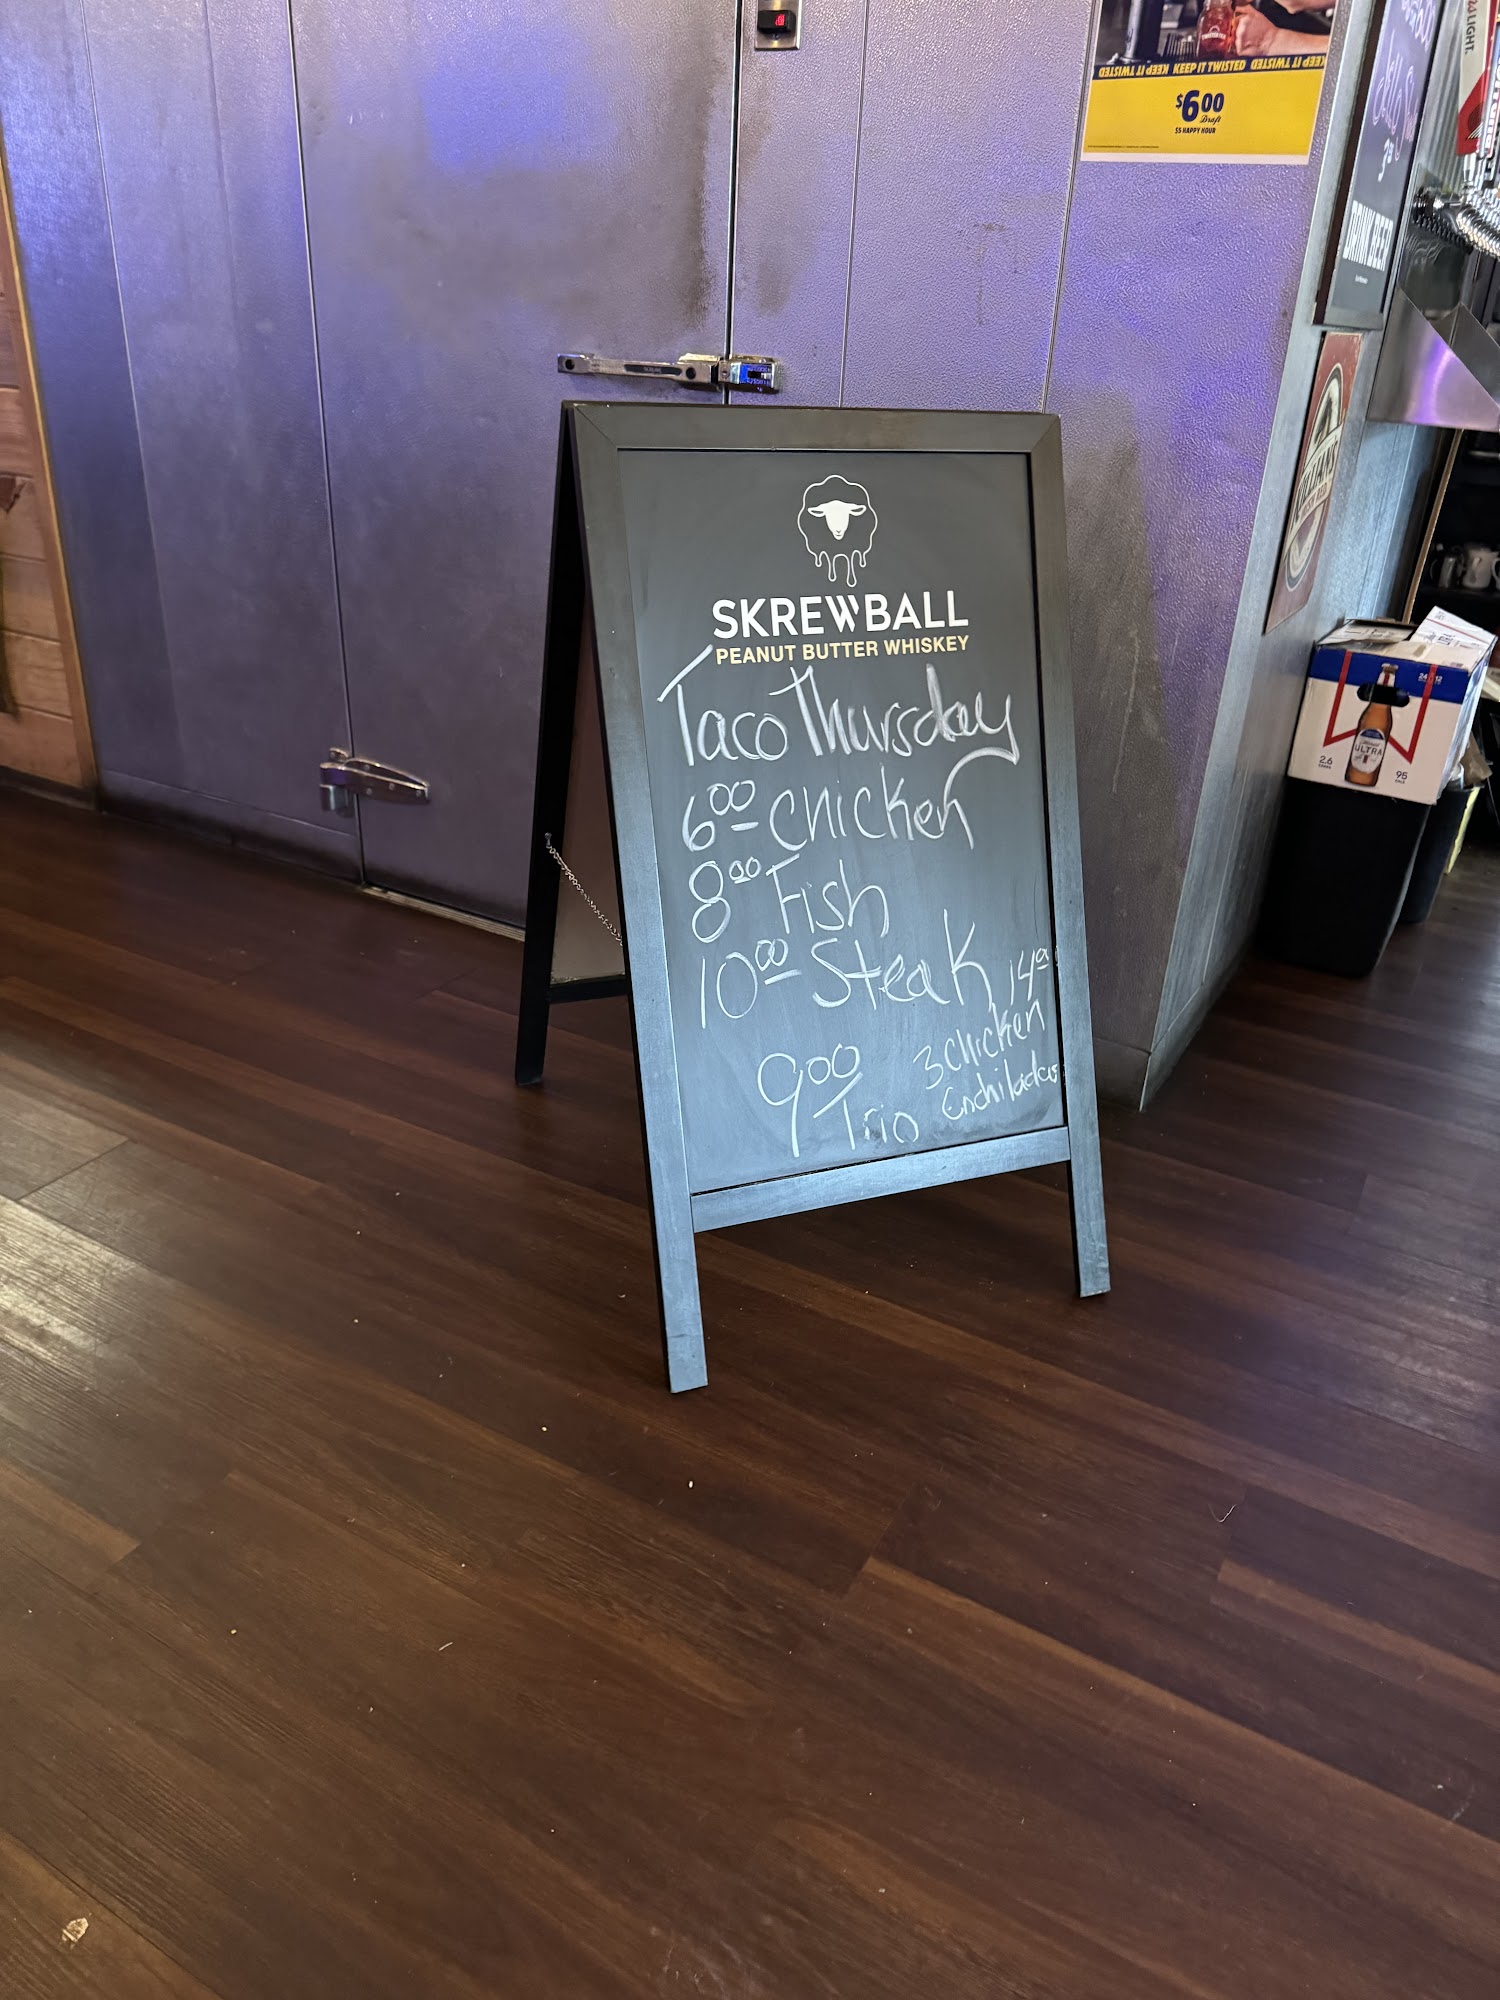 KEEP IT TWISTED KEEP IT TWISTED KEEP IT TWISTED
$6.00
Draft
$5 HAPPY HOUR
LIGHT
DRINK BEER
SKREWBALL
PEANUT BUTTER WHISKEY
Taco Thursday
6.00 Chicken
8.00 Fish
10.00 Steak
14.00
3 Chicken
Enchiladas
9.00
Trio
ULTRA
2.6
95